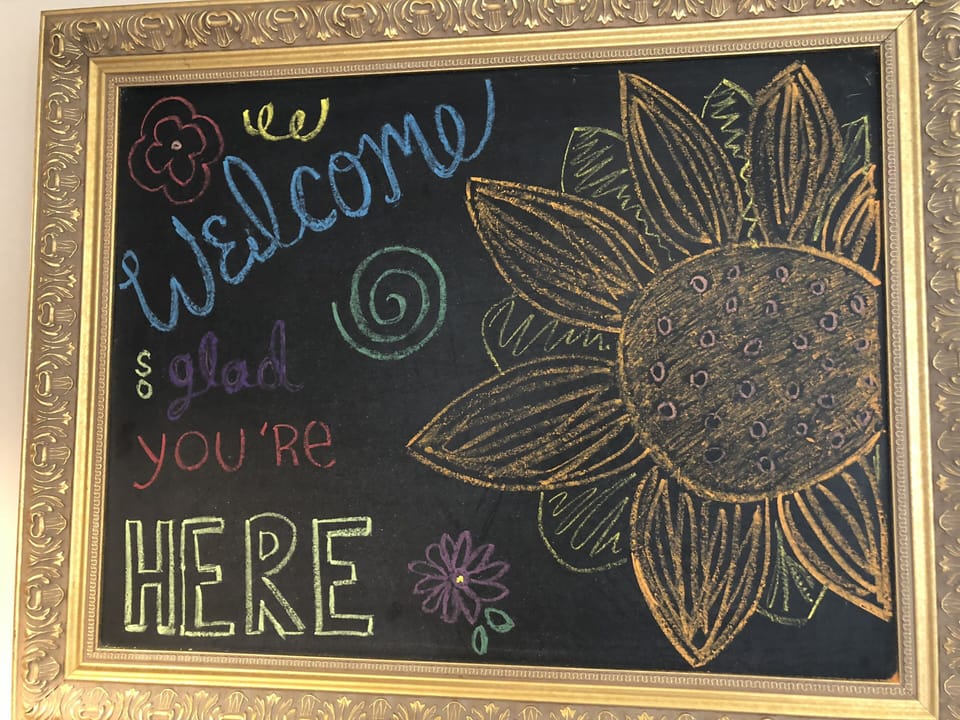 Welcome
so glad
you're
HERE